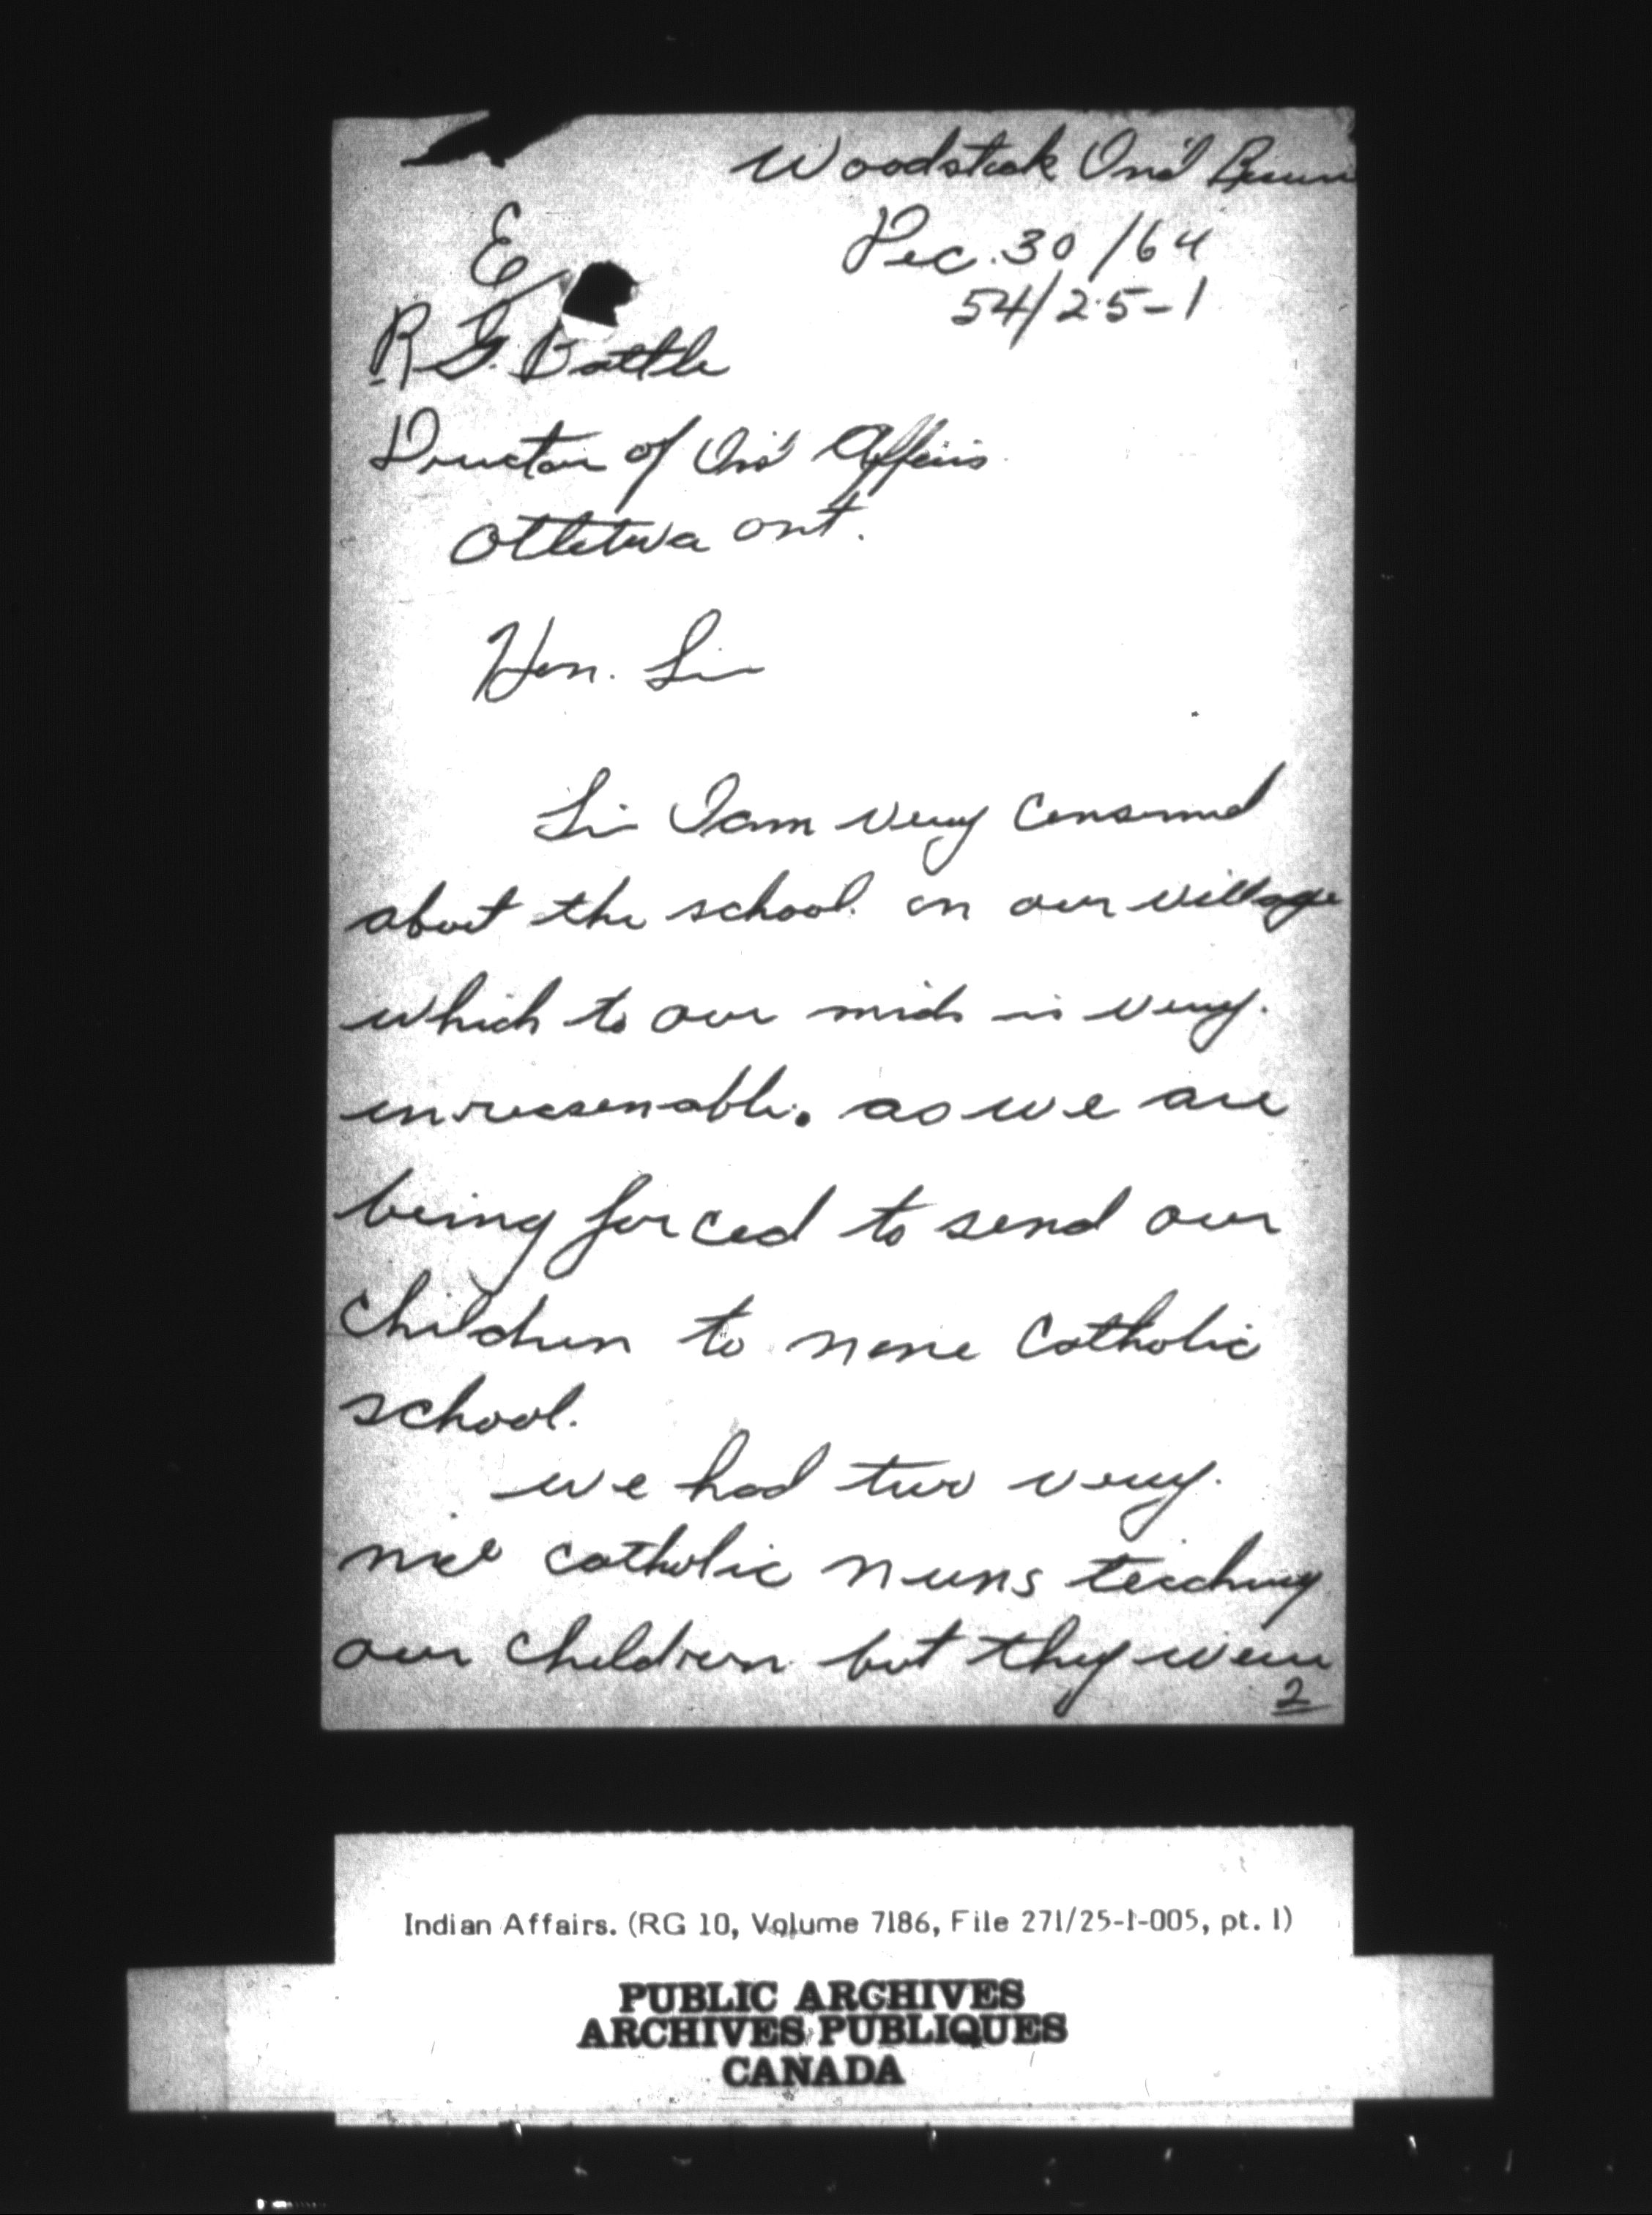 Woodstock Ind Reserve
Dec. 30 /64
54/25-1
E
R G. Battle
Director of Ind Affairs
Ottetwa ont.
Hon. Sir
Sir I am very Conserned
about the school. on our village
which to our minds is very.
unreasenable. as we are
being forced to send our
children to none Catholic
school.
we had two very.
nice catholic nuns teaching
our children but they were
2
Indian Affairs. (RG 10, Volume 7186, File 271/25-1-005, pt. 1)
PUBLIC ARCHIVES
ARCHIVES PUBLIQUES
CANADA